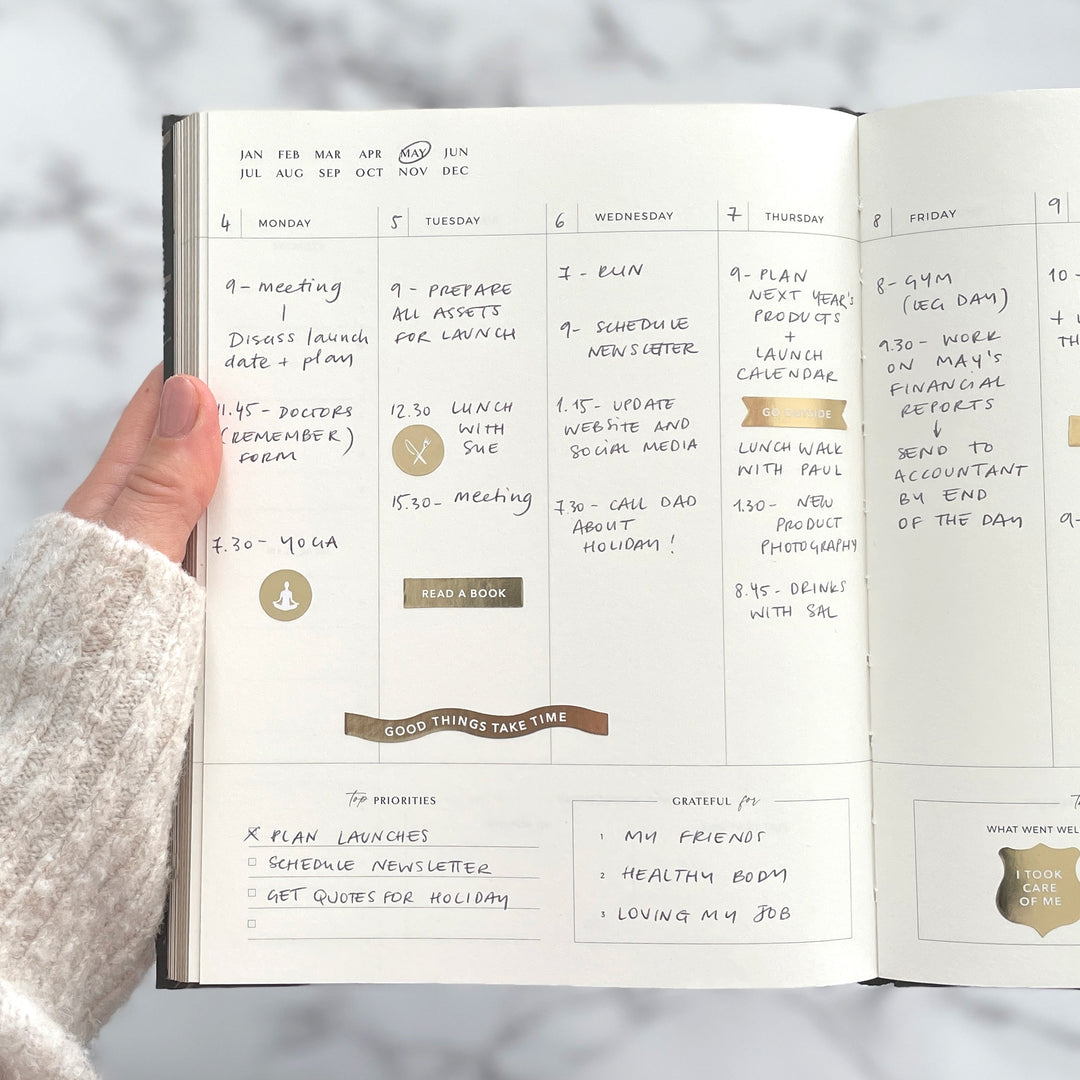 JAN FEB MAR APR MAY JUN
JUL AUG SEP OCT NOV DEC
4 MONDAY
9 - meeting
Discuss launch
date + plan
11.45 - DOCTORS
(REMEMBER)
FORM
7.30 - YOGA
5 TUESDAY
9 - PREPARE
ALL ASSETS
FOR LAUNCH
12.30 LUNCH
WITH
SUE
15.30 - meeting
READ A BOOK
GOOD THINGS TAKE TIME
6 WEDNESDAY
7 - RUN
9 - SCHEDULE
NEWSLETTER
1.15 - UPDATE
WEBSITE AND
SOCIAL MEDIA
7.30 - CALL DAD
ABOUT
HOLIDAY!
7 THURSDAY
9 - PLAN
NEXT YEAR'S
PRODUCTS
+
LAUNCH
CALENDAR
GO OUTSIDE
LUNCH WALK
WITH PAUL
1.30 - NEW
PRODUCT
PHOTOGRAPHY
8.45 - DRINKS
WITH SAL
8 FRIDAY
8 - GYM
(LEG DAY)
9.30 - WORK
ON MAY'S
FINANCIAL
REPORTS
↓
SEND TO
ACCOUNTANT
BY END
OF THE DAY
9
10 -
+
TH
9 -
top PRIORITIES
PLAN LAUNCHES
SCHEDULE NEWSLETTER
GET QUOTES FOR HOLIDAY
GRATEFUL for
1 MY FRIENDS
2 HEALTHY BODY
3 LOVING MY JOB
WHAT WENT WEL
I TOOK
CARE
OF ME